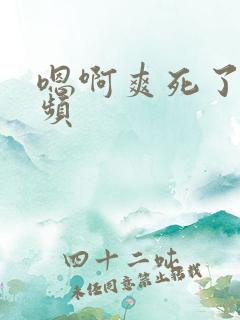 嗯啊爽死了
频
四十二吔
未经同意禁止转载